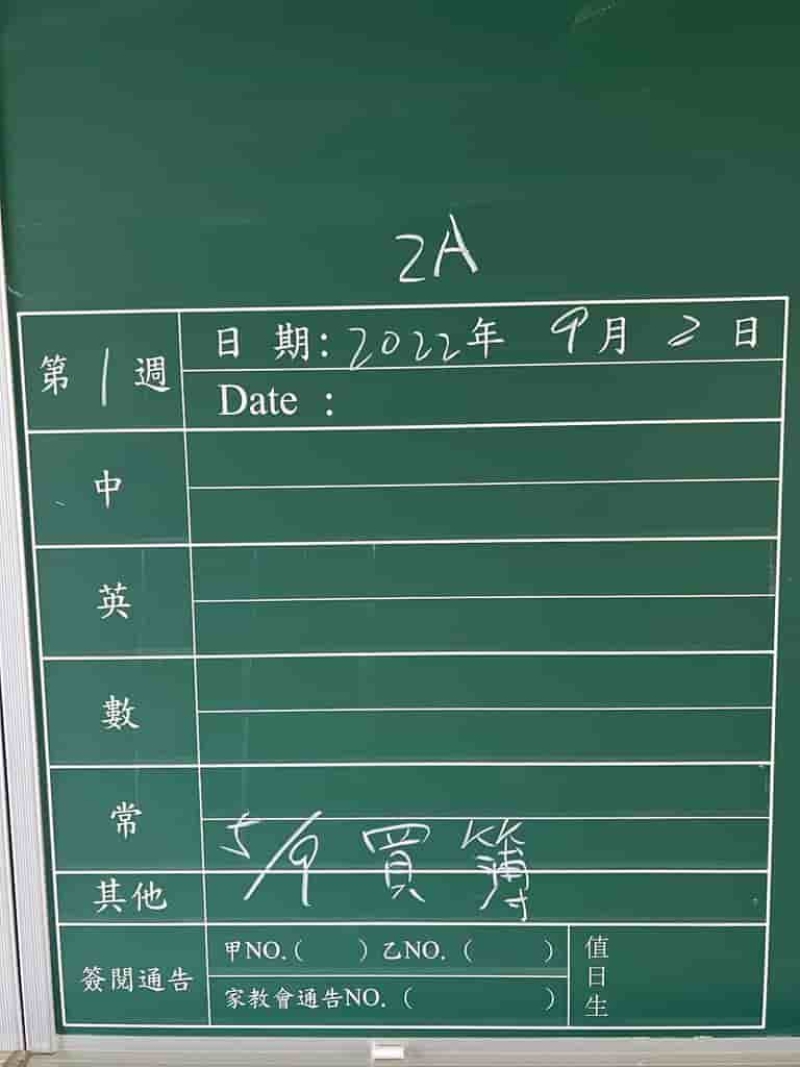 2A
第1週
日期：2022年 9月 2日
Date :
中
英
數
常
5/9 買簿
其他
簽閱通告
甲NO.( ) 乙NO. ( )
家教會通告NO. ( )
值日生